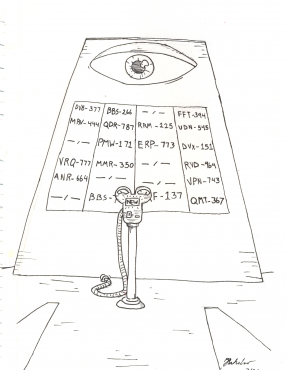 BBS-266 -/- FFT-394
MBV-444 QDR-787 RNM-125 VDN-545
-/- PMW-171 ERP-773 DVX-151
VRQ-777 MMR-330 -/- RVD-969
ANR-664 -/- -/- VPN-743
-/- BBS- F-137 QMT-367